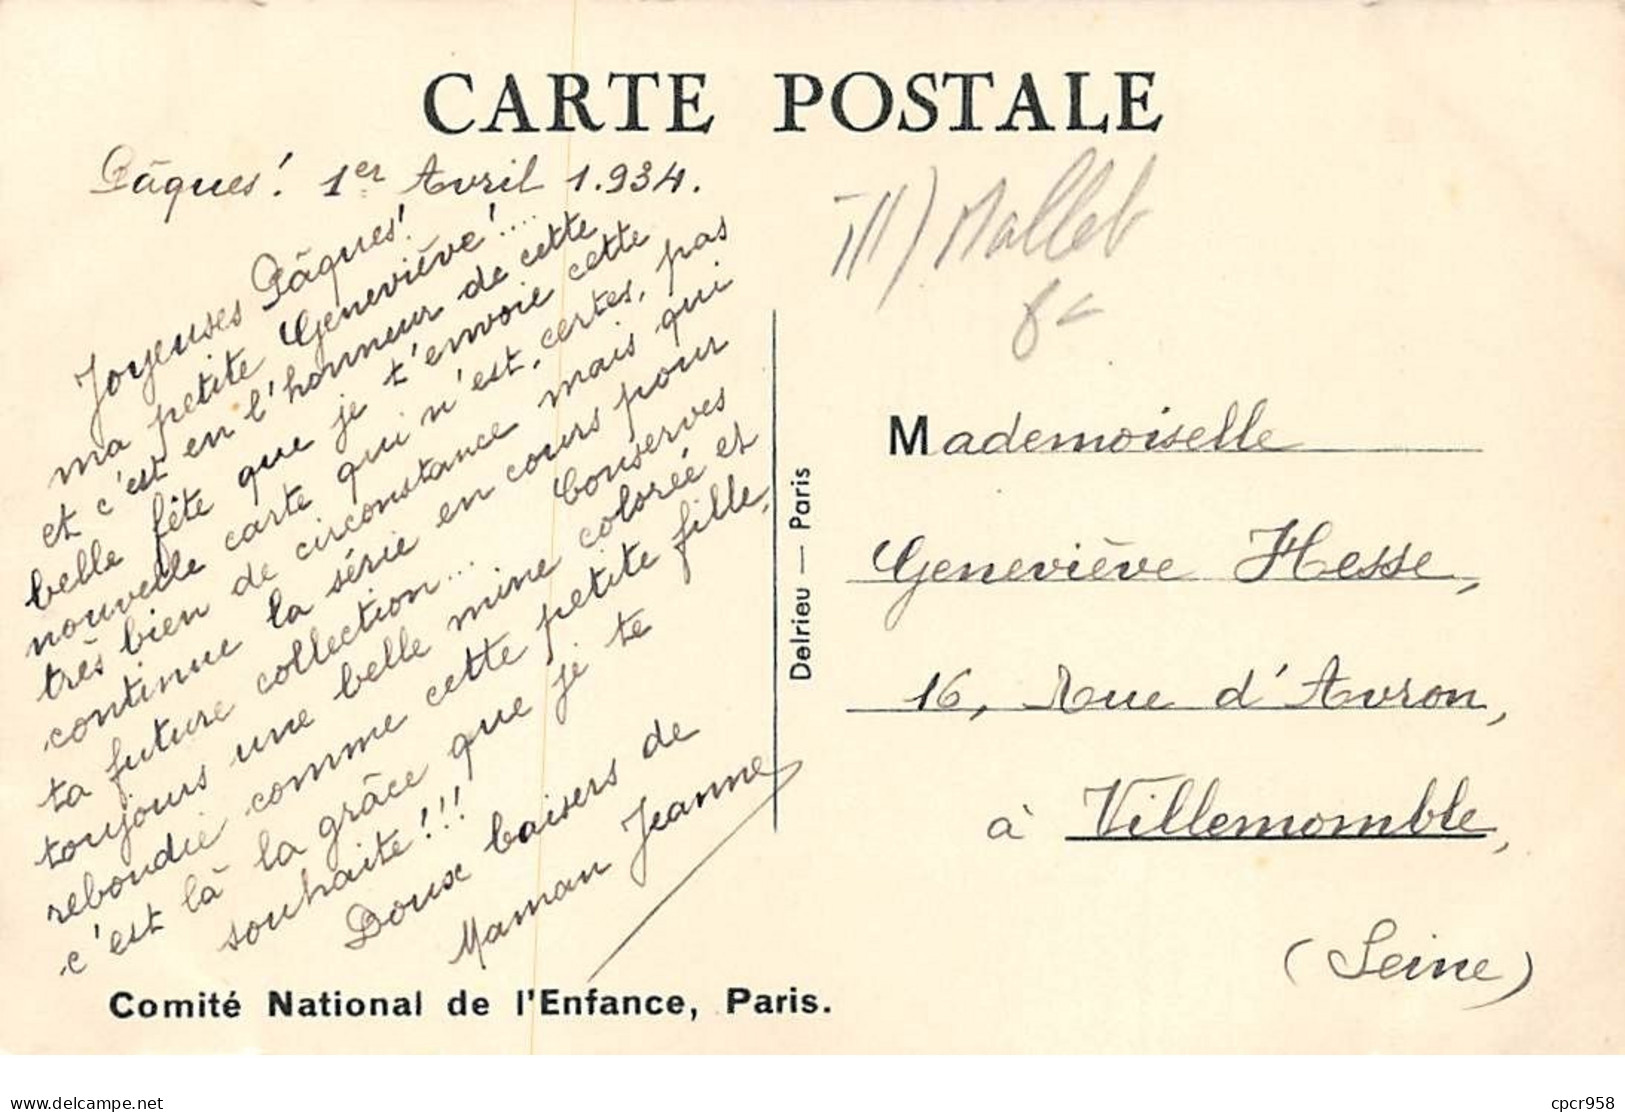 CARTE POSTALE
Pâques! 1er Avril 1.934.
Joyeuses Pâques!
ma petite Geneviève!....
et c'est en l'honneur de cette
belle fête que je t'envoie cette
nouvelle carte qui n'est, certes, pas
très bien de circonstance mais qui
continue la série en cours pour
ta future collection... Conserves
toujours une belle mine colorée et
rebondie comme cette petite fille,
c'est là la grâce que je te
souhaite!!!
Doux baisers de
Maman Jeanne
Comité National de l'Enfance, Paris.
Delrieu — Paris
Ill) Mallet
Mademoiselle
Geneviève Hesse,
16, Rue d'Avron,
à Villemomble,
(Seine)
delcampe.net
cpcr958